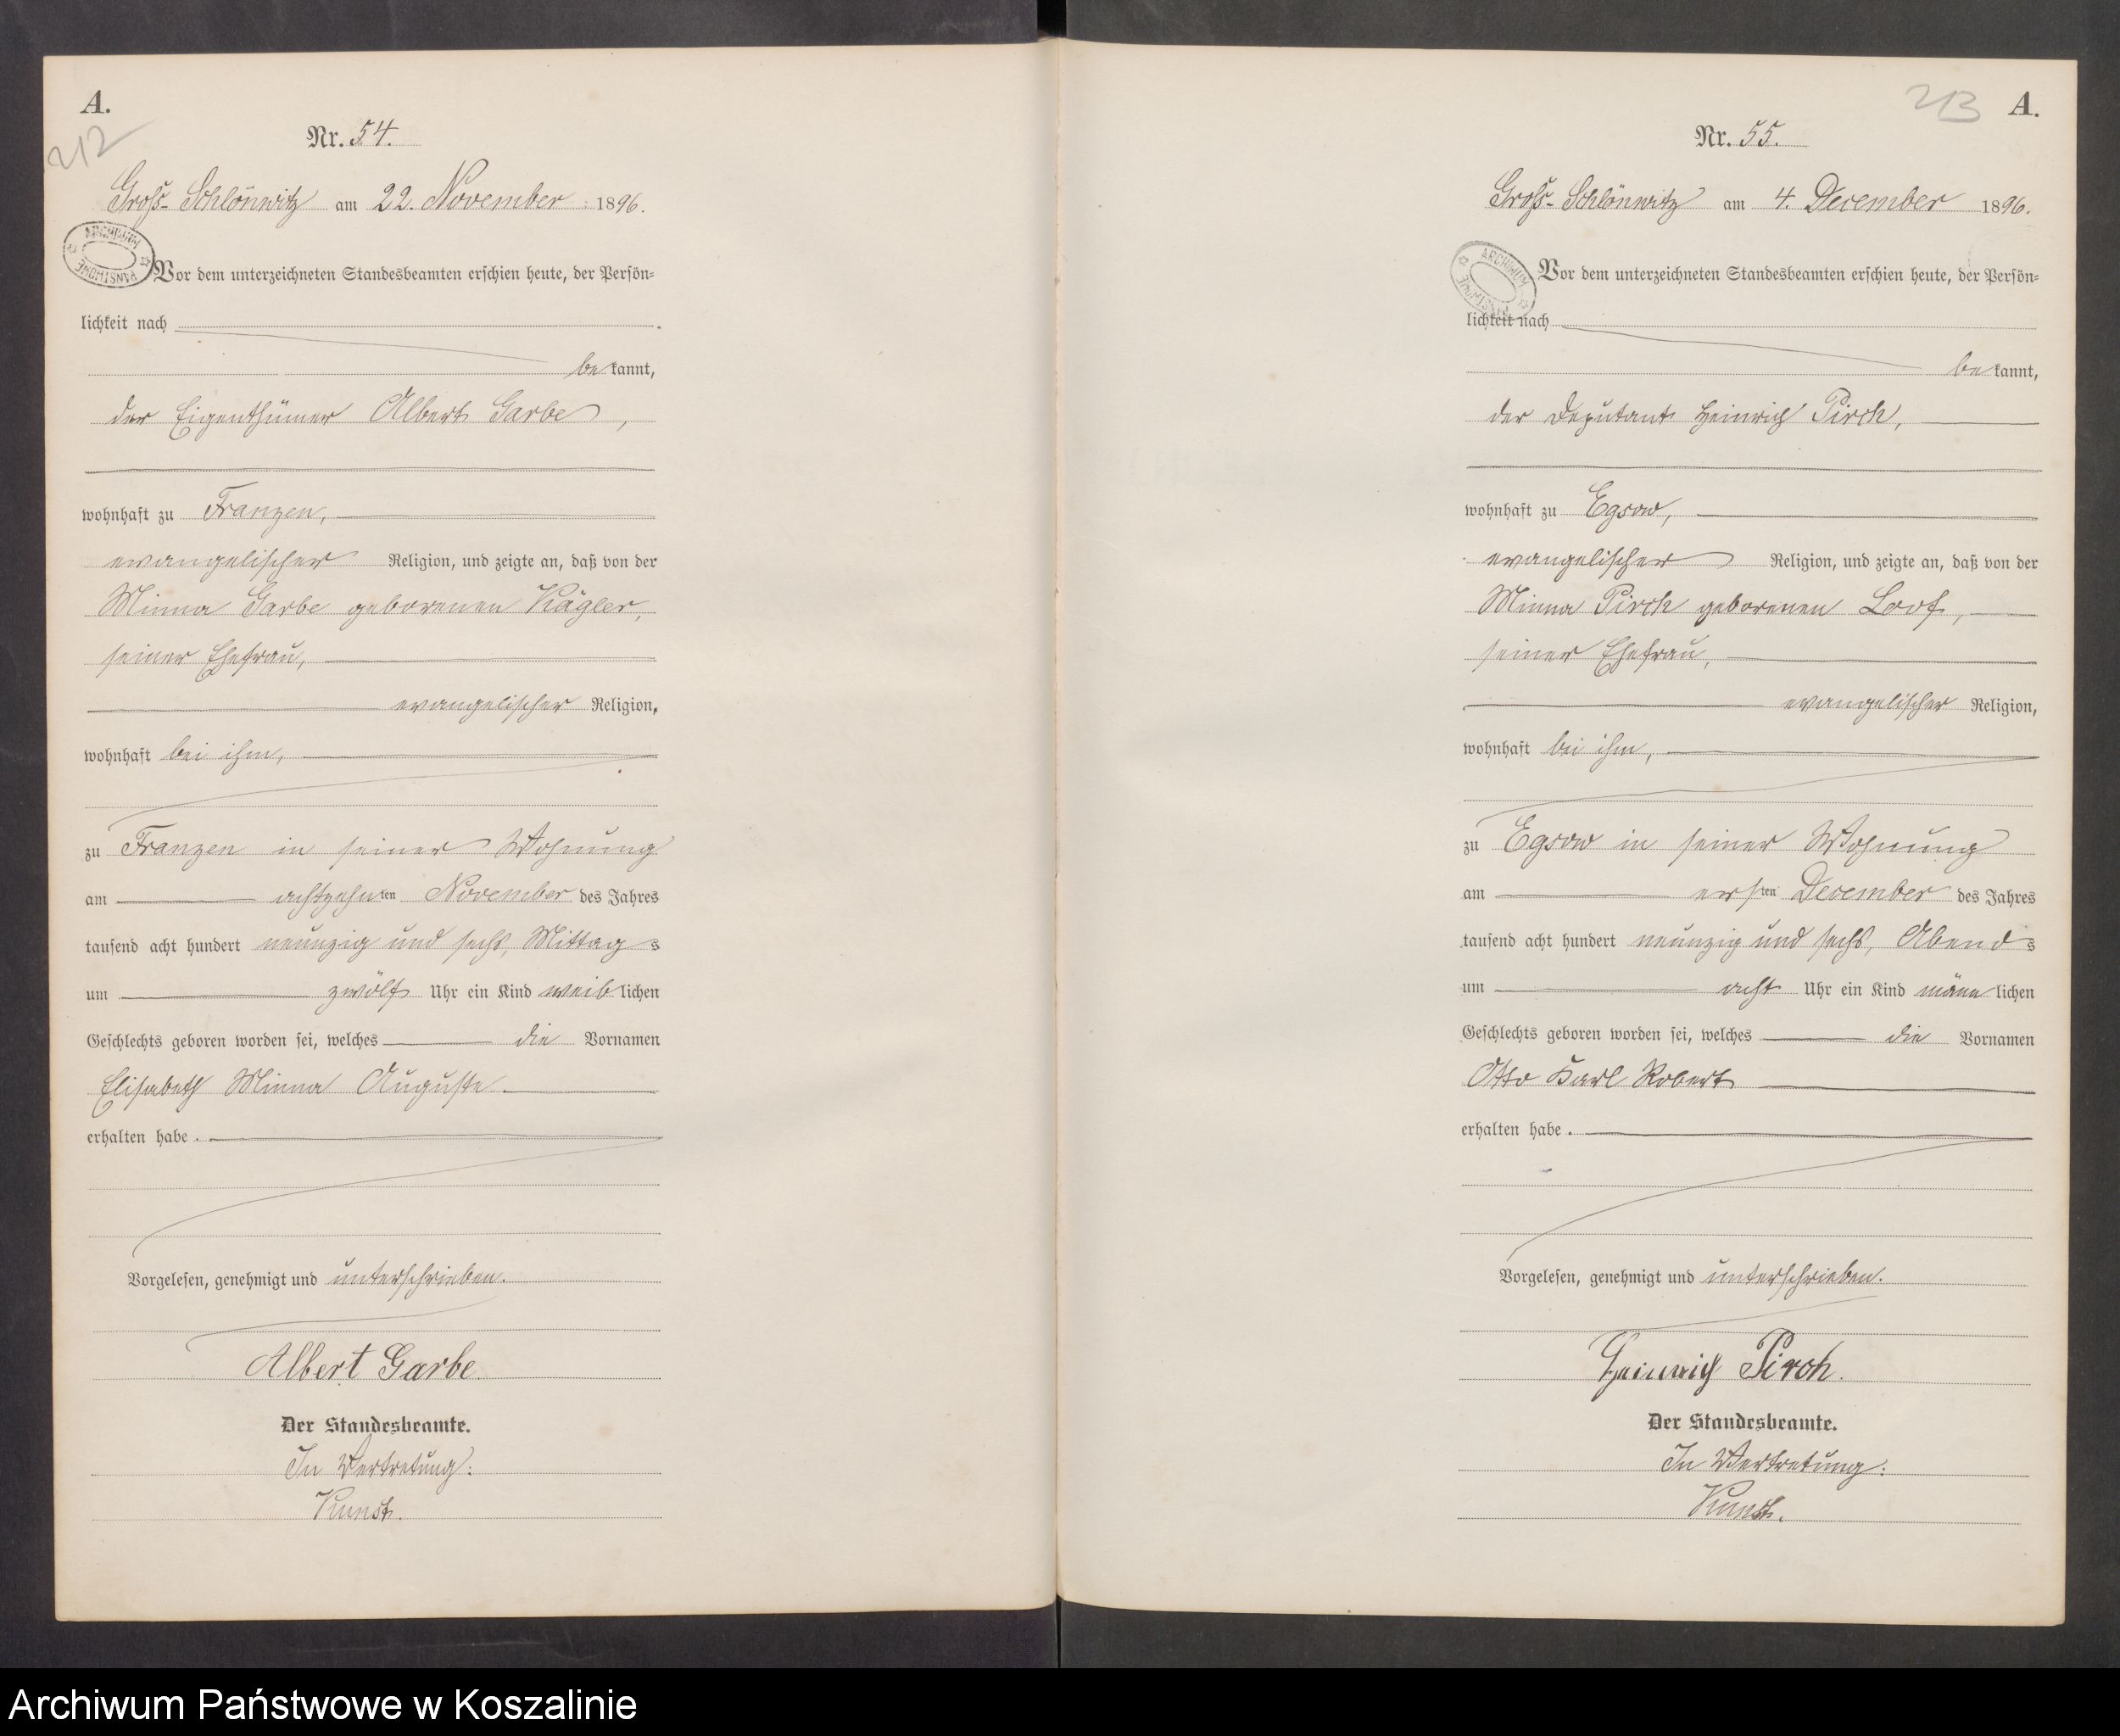 A.
212
Nr. 54.
Groß-Schlönwitz am 22. November 1896.
ARCHIWUM PAŃSTWOWE
Vor dem unterzeichneten Standesbeamten erschien heute, der Persön=
lichkeit nach
bekannt,
der Eigenthümer Albert Garbe,
wohnhaft zu Franzen,
evangelischer Religion, und zeigte an, daß von der
Minna Garbe geborenen Kägler,
seiner Ehefrau,
evangelischer Religion,
wohnhaft bei ihm,
zu Franzen in seiner Wohnung
am achtzehnten November des Jahres
tausend acht hundert neunzig und sechs, Mittags
um zwölf Uhr ein Kind weiblichen
Geschlechts geboren worden sei, welches die Vornamen
Elisabeth Minna Auguste
erhalten habe.
Vorgelesen, genehmigt und unterschrieben.
Albert Garbe.
Der Standesbeamte.
In Vertretung:
Kunst.
213
A.
Nr. 55.
Groß-Schlönwitz am 4. December 1896.
ARCHIWUM PAŃSTWOWE
Vor dem unterzeichneten Standesbeamten erschien heute, der Persön=
lichkeit nach
bekannt,
der Deputant Heinrich Pirch,
wohnhaft zu Egsow,
evangelischer Religion, und zeigte an, daß von der
Minna Pirch geborenen Loof,
seiner Ehefrau,
evangelischer Religion,
wohnhaft bei ihm,
zu Egsow in seiner Wohnung
am ersten December des Jahres
tausend acht hundert neunzig und sechs, Abends
um acht Uhr ein Kind männlichen
Geschlechts geboren worden sei, welches die Vornamen
Otto Karl Robert
erhalten habe.
Vorgelesen, genehmigt und unterschrieben.
Heinrich Pirch.
Der Standesbeamte.
In Vertretung:
Kunst.
Archiwum Państwowe w Koszalinie